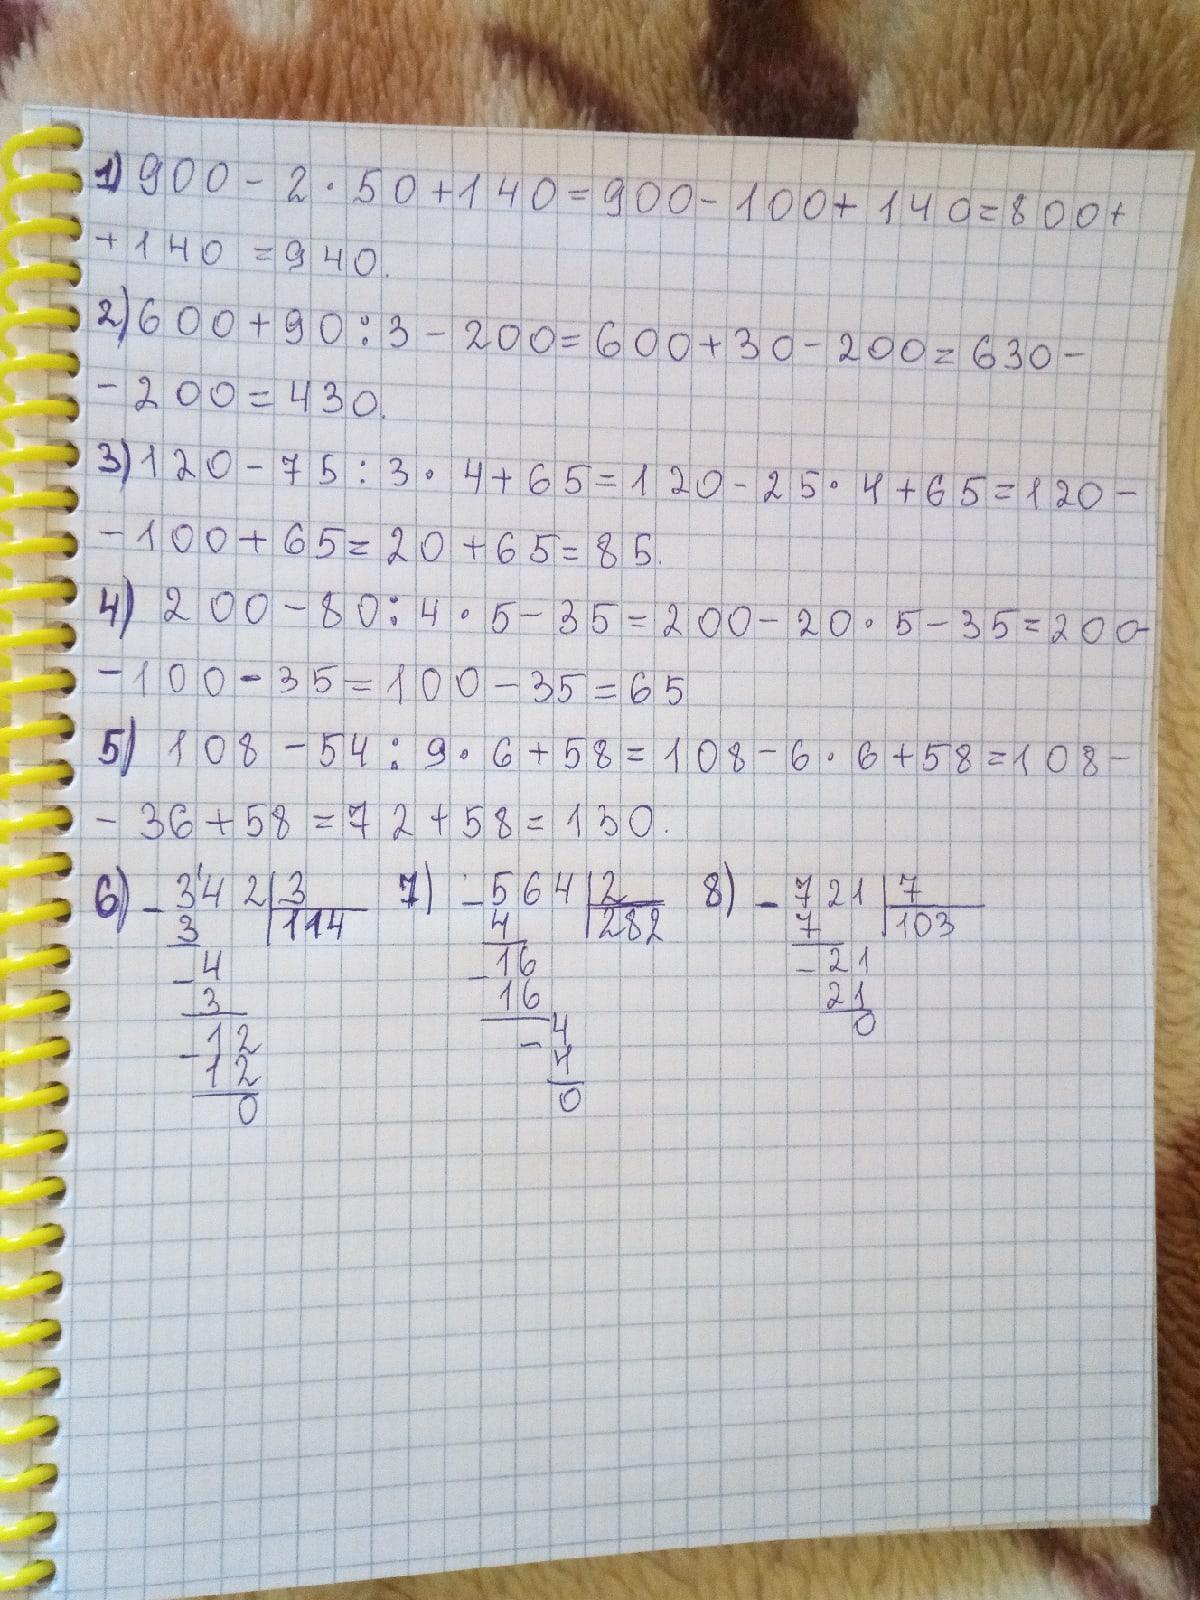 1) 900 - 2 · 50 + 140 = 900 - 100 + 140 = 800 +
+ 140 = 940.
2) 600 + 90 : 3 - 200 = 600 + 30 - 200 = 630 -
- 200 = 430.
3) 120 - 75 : 3 · 4 + 65 = 120 - 25 · 4 + 65 = 120 -
- 100 + 65 = 20 + 65 = 85.
4) 200 - 80 : 4 · 5 - 35 = 200 - 20 · 5 - 35 = 200 -
- 100 - 35 = 100 - 35 = 65
5) 108 - 54 : 9 · 6 + 58 = 108 - 6 · 6 + 58 = 108 -
- 36 + 58 = 72 + 58 = 130.
6) - 3'42 | 3
3 | 114
- 4
3
- 12
12
0
7) - 564 | 2
4 | 282
- 16
16
- 4
4
0
8) - 721 | 7
7 | 103
- 21
21
0